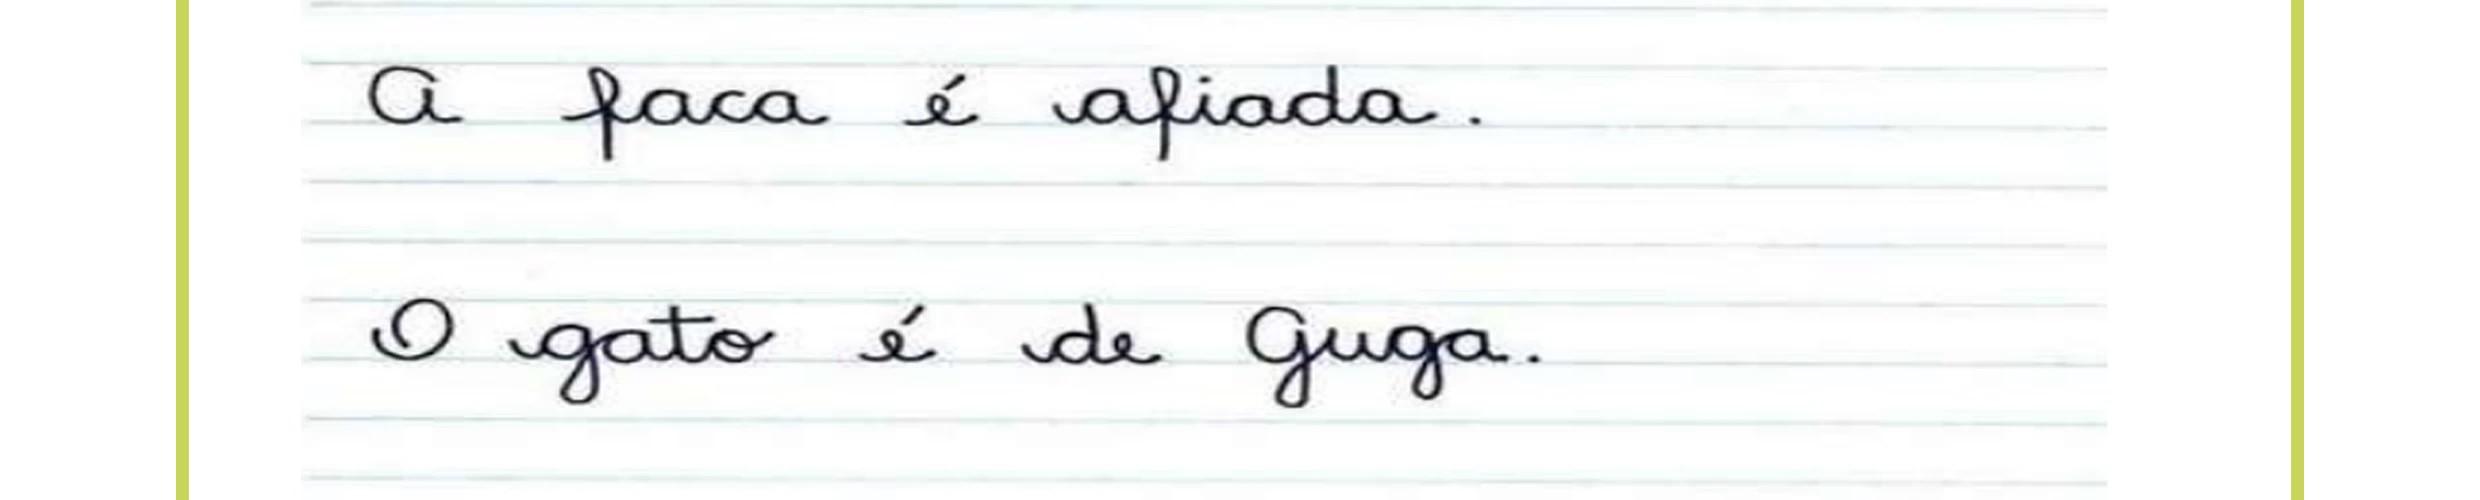 A faca é afiada.
O gato é de Guga.